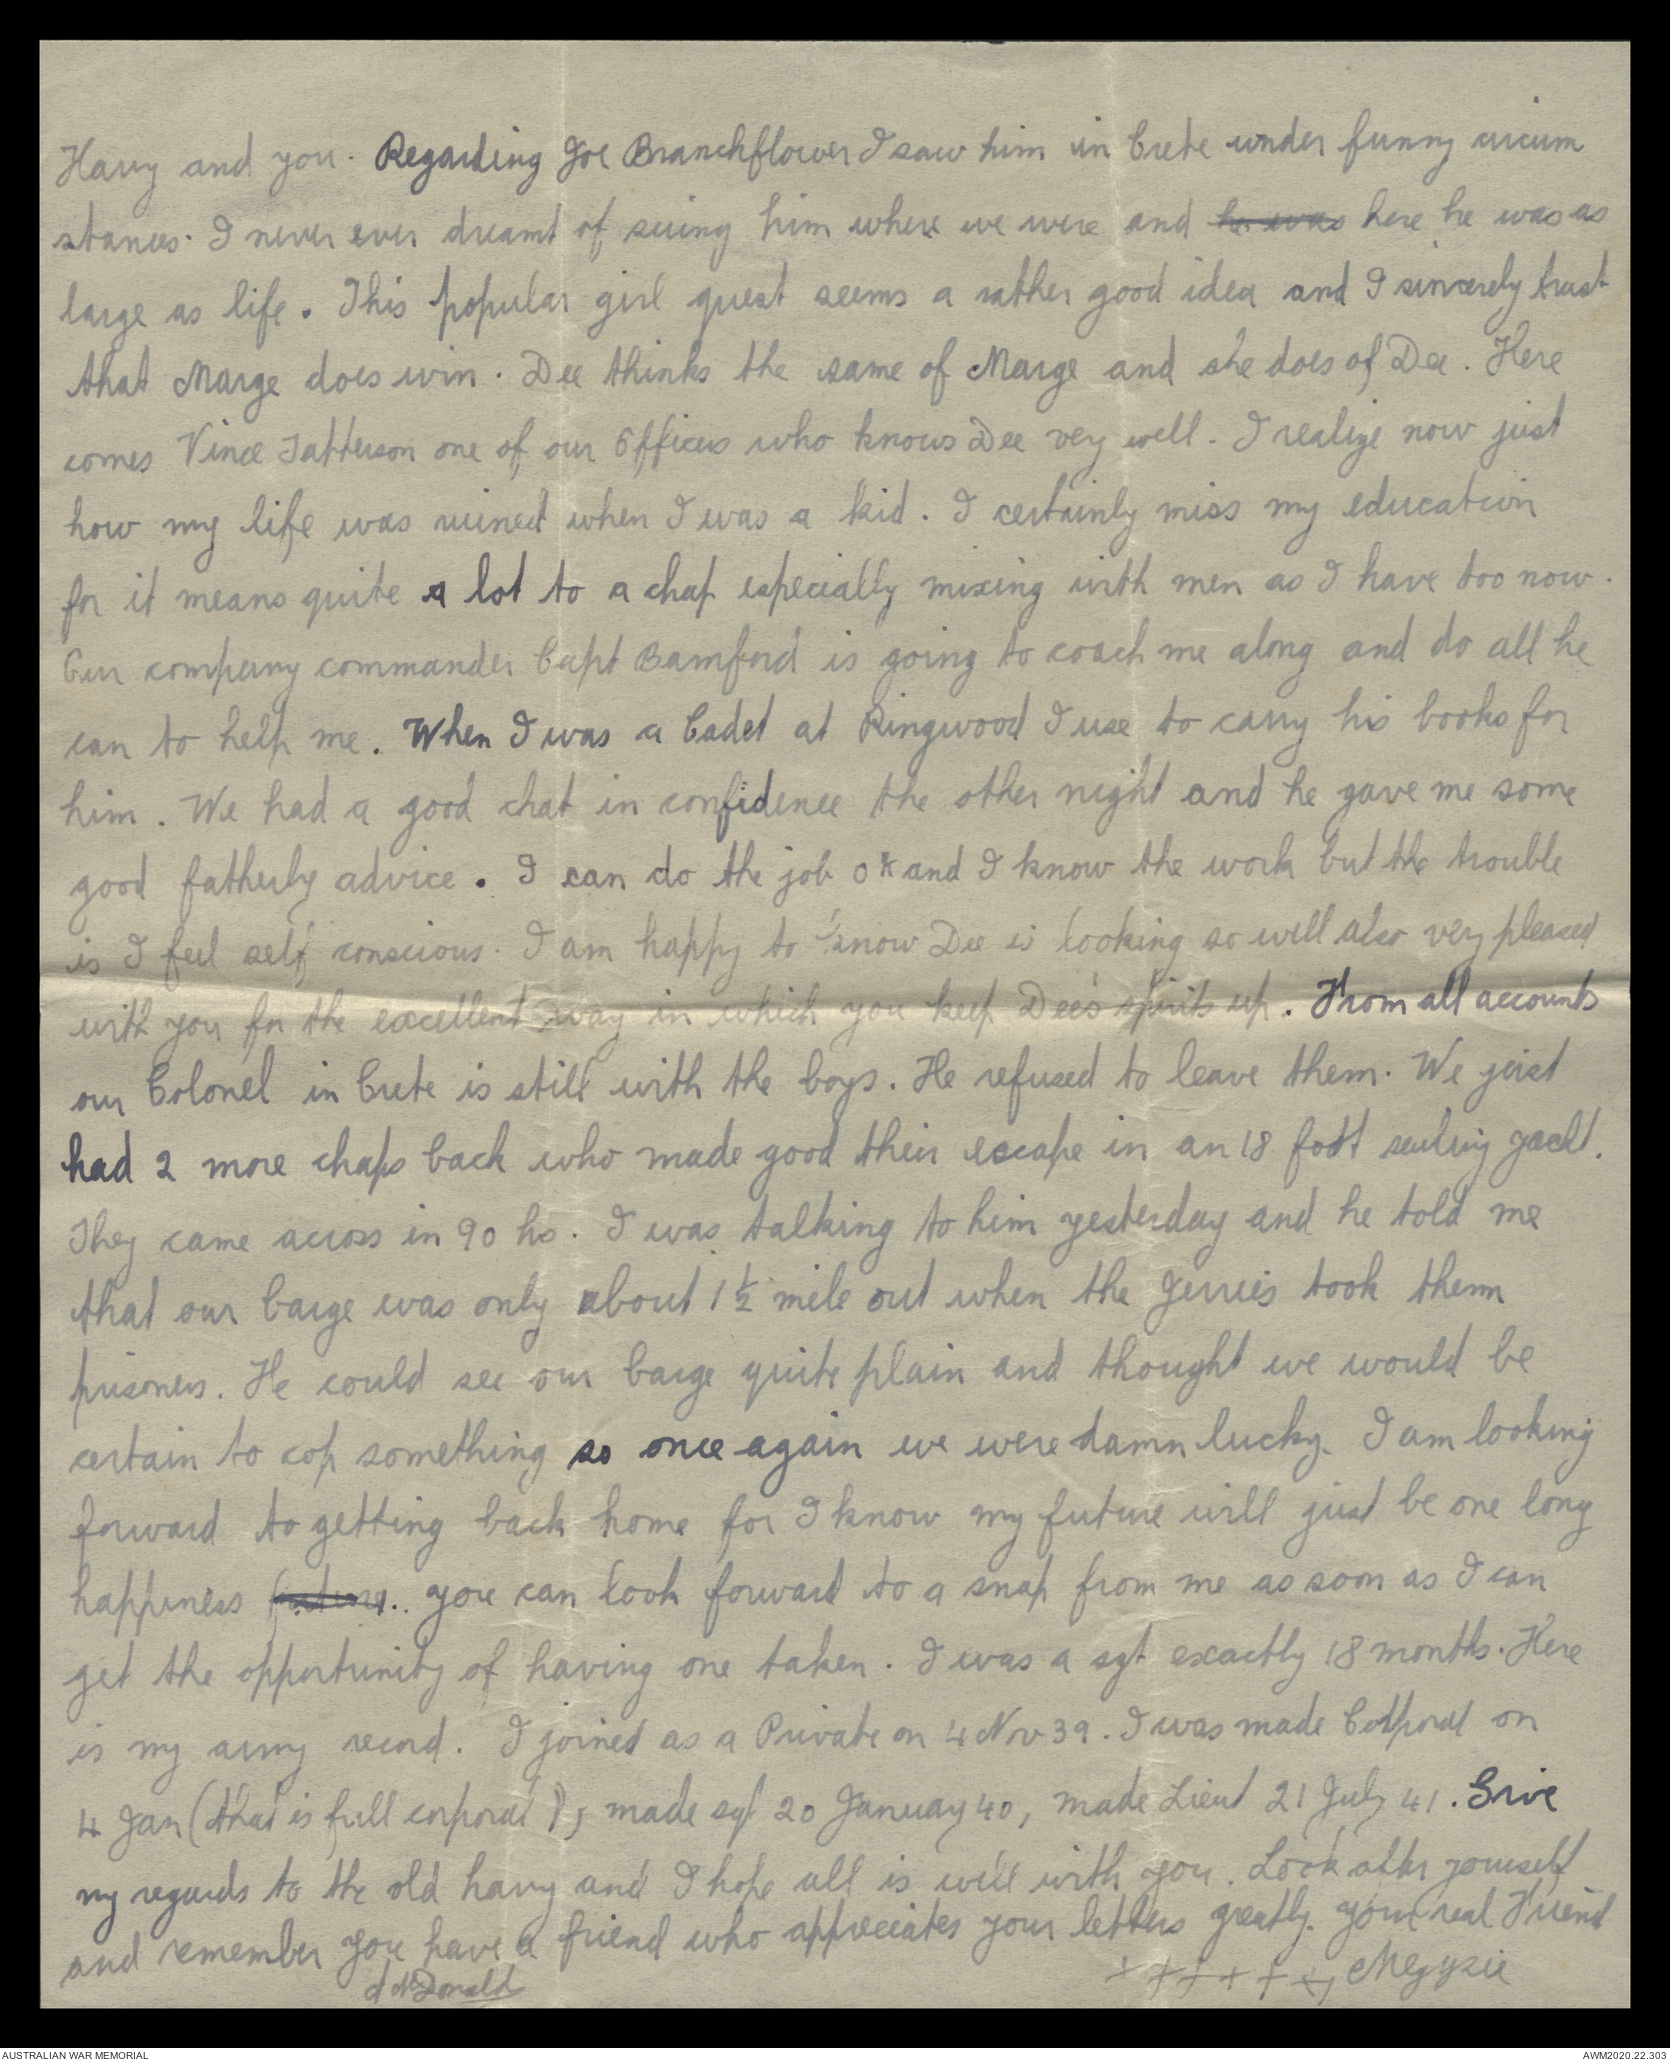 Harry and you. Regarding Joe Branchflower I saw him in Crete under funny circum
stances. I never ever dreamt of seeing him where we were and he was here he was as
large as life. This popular girl quest seems a rather good idea and I sincerely trust
that Marge does win. Dee thinks the same of Marge and she does of Dee. Here
comes Vince Tatterson one of our Officers who knows Dee very well. I realize now just
how my life was ruined when I was a kid. I certainly miss my education
for it means quite a lot to a chap especially mixing with men as I have too now.
Our company commander Capt Bamford is going to coach me along and do all he
can to help me. When I was a Cadet at Ringwood I use to carry his books for
him. We had a good chat in confidence the other night and he gave me some
good fatherly advice. I can do the job OK and I know the work but the trouble
is I feel self conscious. I am happy to know Dee is looking so well also very pleased
with you for the excellent way in which you keep Dee's spirits up. From all accounts
our Colonel in Crete is still with the boys. He refused to leave them. We just
had 2 more chaps back who made good their escape in an 18 foot sailing yacht.
They came across in 90 hs. I was talking to him yesterday and he told me
that our barge was only about 1½ mile out when the Jerries took them
prisoners. He could see our barge quite plain and thought we would be
certain to cop something so once again we were damn lucky. I am looking
forward to getting back home for I know my future will just be one long
happiness future. you can look forward to a snap from me as soon as I can
get the opportunity of having one taken. I was a sgt exactly 18 months. Here
is my army record. I joined as a Private on 4 Nov 39. I was made Corporal on
4 Jan (that is full corporal), made sgt 20 January 40, made Lieut 21 July 41. Give
my regards to the old harry and I hope all is well with you. Look after yourself
and remember you have a friend who appreciates your letters greatly. your real Friend
d McDonald
+ + + + + + Megzie
AUSTRALIAN WAR MEMORIAL
AWM2020.22.303